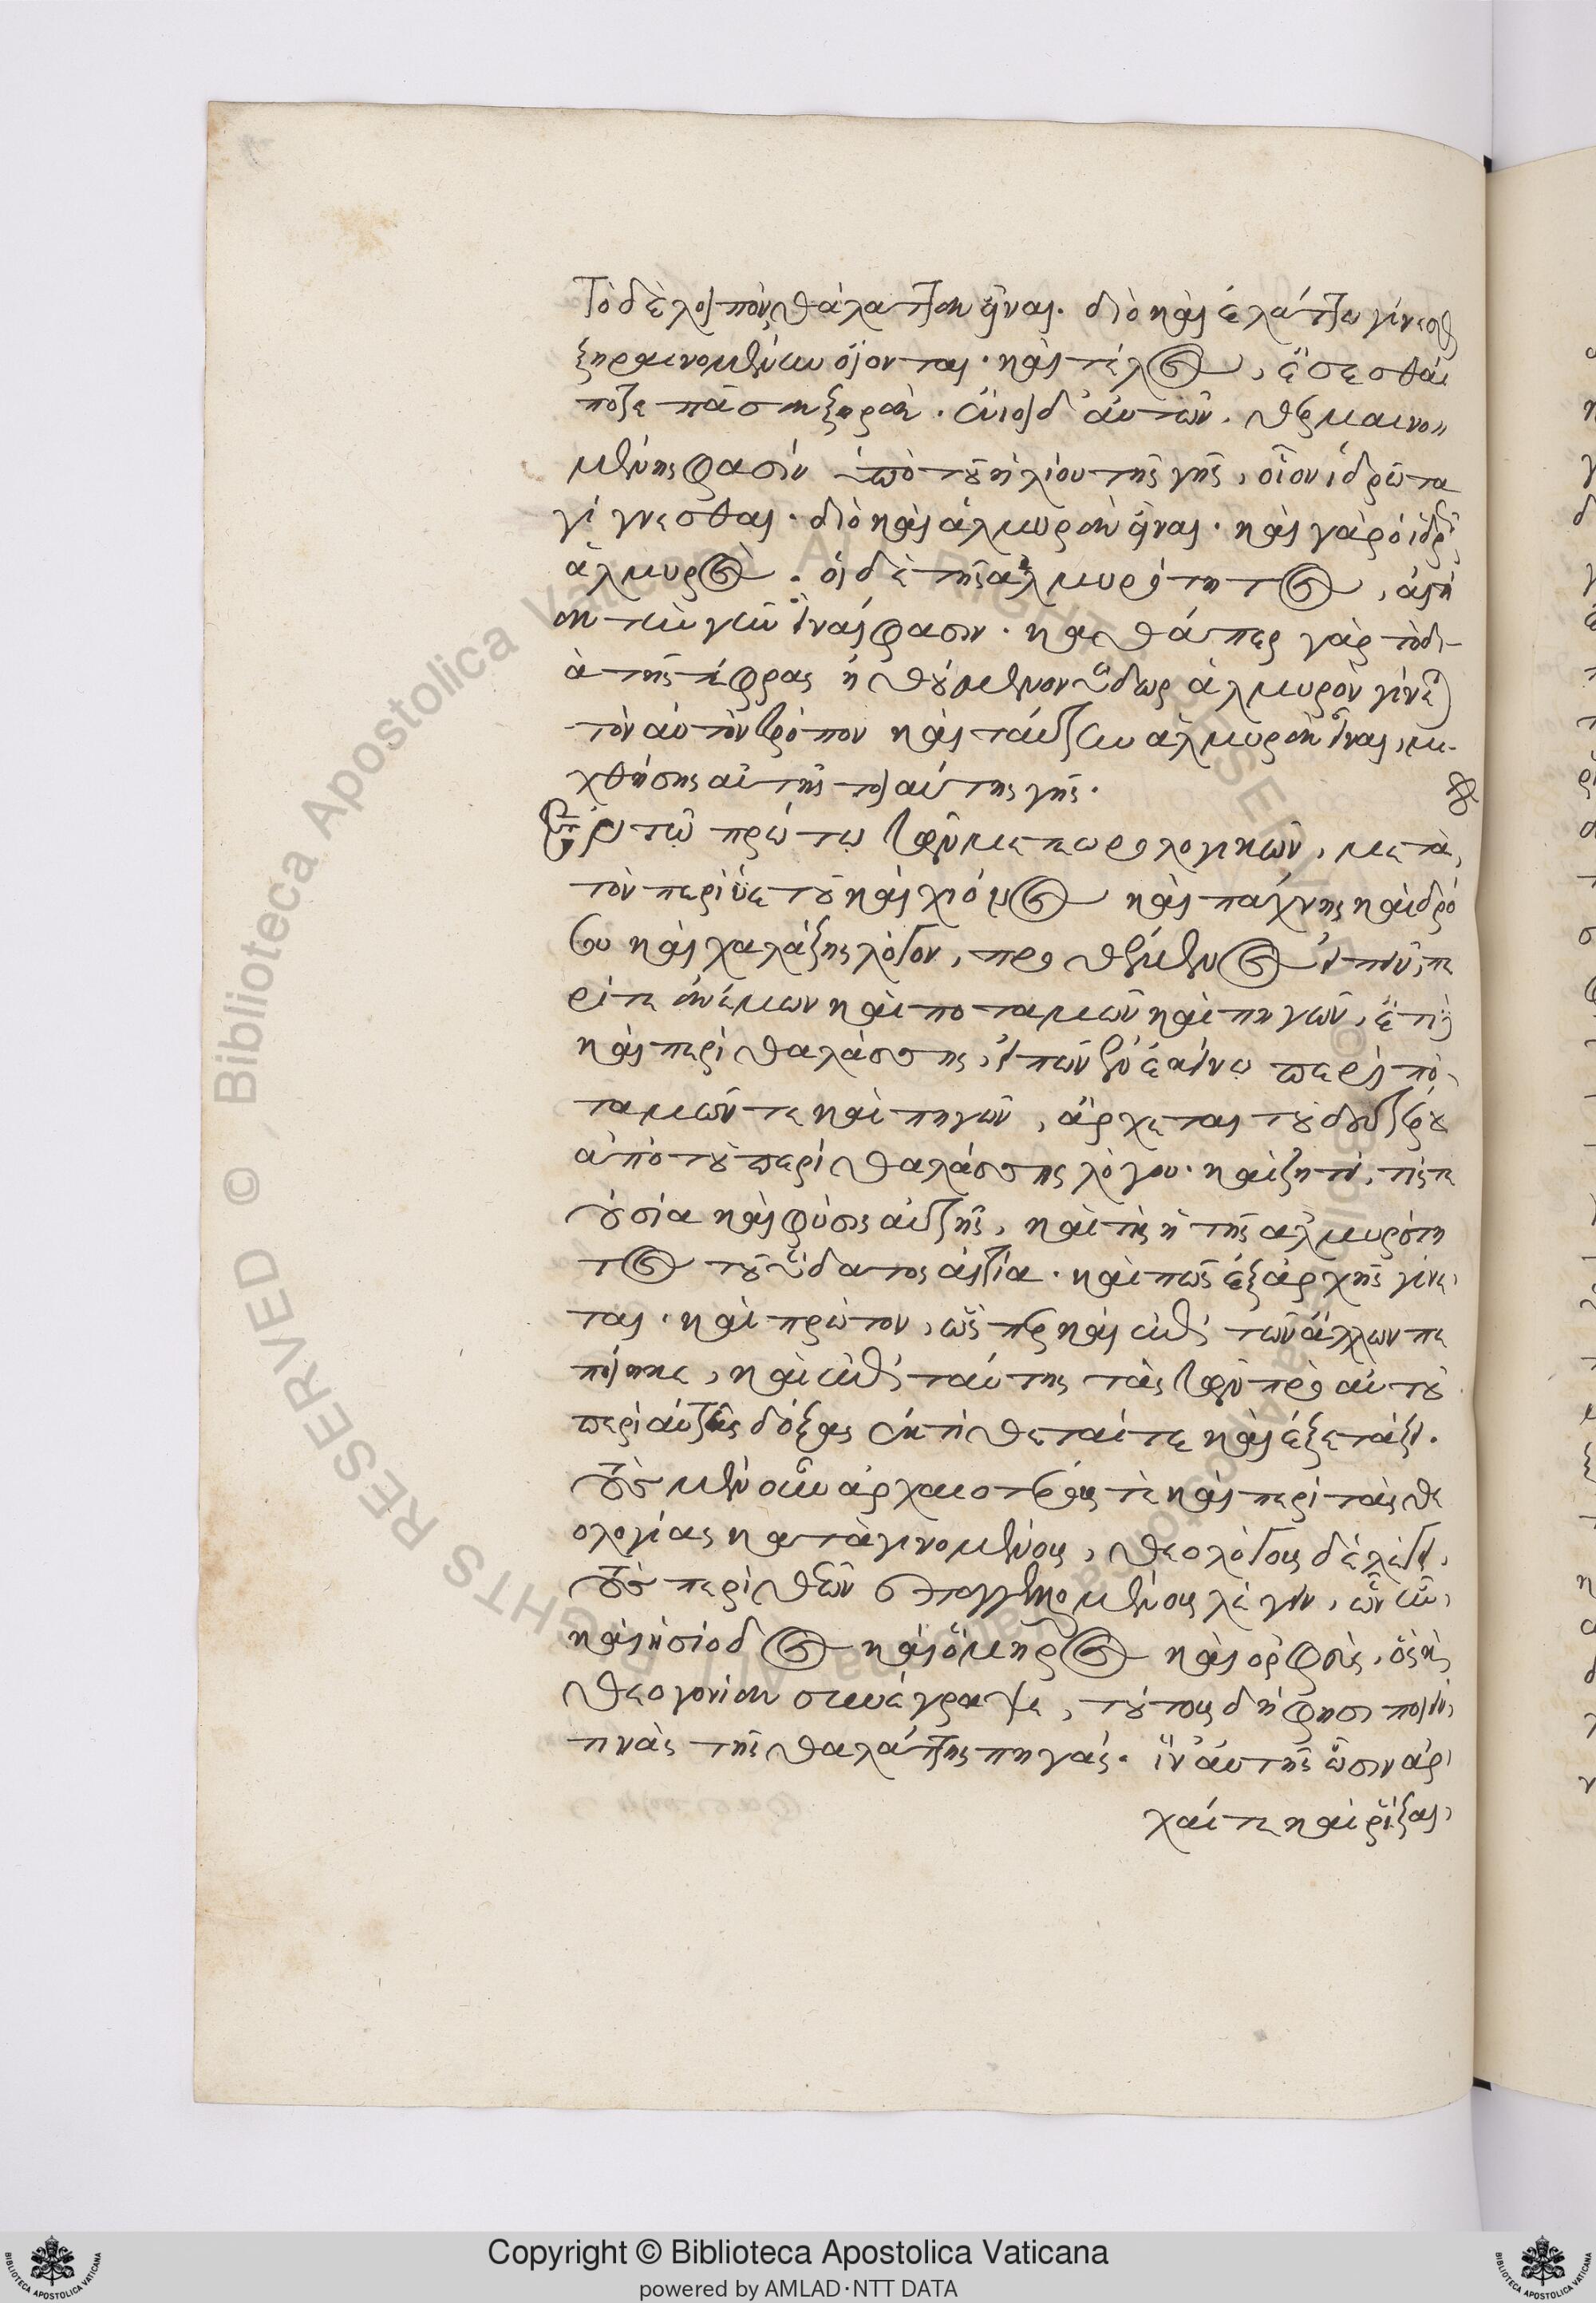 Τὸ δὲ λοιπὸν, θάλατταν εἶναι. διὸ καὶ ἐλάττω γίνεσθαι
ξηραινομένην οἴονται. καὶ τέλος, ἔσεσθαί
ποτε πᾶσαν ξηράν. ἔνιοι δ' αὐτῶν. θερμαινο
μένης φασὶν ὑπὸ τοῦ ἡλίου τῆς γῆς, οἷον ἱδρῶτα
γίγνεσθαι. διὸ καὶ ἁλμυρὰν εἶναι. καὶ γὰρ ὁ ἱδρὼς
ἁλμυρός. οἱ δὲ τῆς ἁλμυρότητος, αἰτί
αν τὴν γῆν εἶναί φασιν. καθάπερ γὰρ τὸ δι
ὰ τῆς τέφρας ἠθούμενον ὕδωρ ἁλμυρὸν γίνεται
τὸν αὐτὸν τρόπον καὶ ταύτην ἁλμυρὰν εἶναι, μι
χθείσης αὐτῇ τοιαύτης γῆς.
Ἐν τῷ πρώτῳ τῶν μετεωρολογικῶν, μετὰ
τὸν περὶ ὑετοῦ καὶ χιόνος καὶ πάχνης καὶ δρό
σου καὶ χαλάζης λόγον, προθέμενος εἰπεῖν, πε
ρί τε ἀνέμων καὶ ποταμῶν καὶ πηγῶν, ἔτι δὲ
καὶ περὶ θαλάσσης, εἰπὼν ἐν ἐκείνῳ περὶ πο
ταμῶν τε καὶ πηγῶν, ἄρχεται τοῦ δευτέρου
ἀπὸ τοῦ περὶ θαλάσσης λόγου. καὶ ζητεῖ, τίς τε
οὐσία καὶ φύσις αὐτῆς, καὶ τίς ἡ τῆς ἁλμυρότη
τος τοῦ ὕδατος αἰτία. καὶ πῶς ἐξ ἀρχῆς γίνε
ται. καὶ πρῶτον, ὥσπερ καὶ ἐπὶ τῶν ἄλλων πε
ποίηκε, καὶ ἐπὶ ταύτης τὰς τῶν πρὸ αὐτοῦ
περὶ αὐτῆς δόξας ἐκτίθεταί τε καὶ ἐξετάζει.
τοὺς μὲν οὖν ἀρχαιοτέρους τε καὶ περὶ τὰς θε
ολογίας καταγινομένους, θεολόγους δὲ λέγει,
τοὺς περὶ θεῶν ἐπαγγελλομένους λέγειν, ὧν ἦν
καὶ ἡσίοδος καὶ ὅμηρος καὶ ὀρφεὺς, ὃς καὶ
θεογονίαν συνέγραψε, τούτους δή φησι ποιεῖν
τινὰς τῆς θαλάττης πηγάς. ἵν' αὐτῆς ὦσιν ἀρ
χαί τε καὶ ῥίζαι,
Copyright © Biblioteca Apostolica Vaticana
powered by AMLAD·NTT DATA